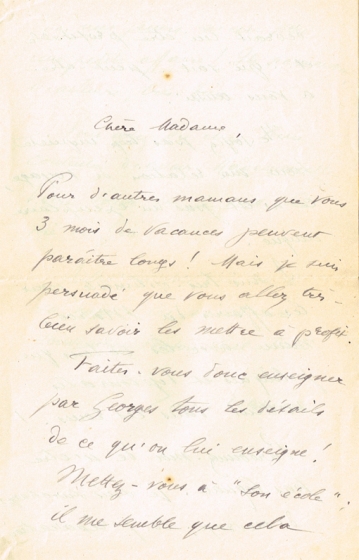 Chère Madame,
Pour d'autres mamans que vous
3 mois de vacances peuvent
paraître longs! Mais je suis
persuadé que vous allez très-
bien savoir les mettre a profit.
Faites-vous donc enseigner
par Georges tous les détails
de ce qu'on lui enseigne!
Mettez-vous à "son école";
il me semble que cela